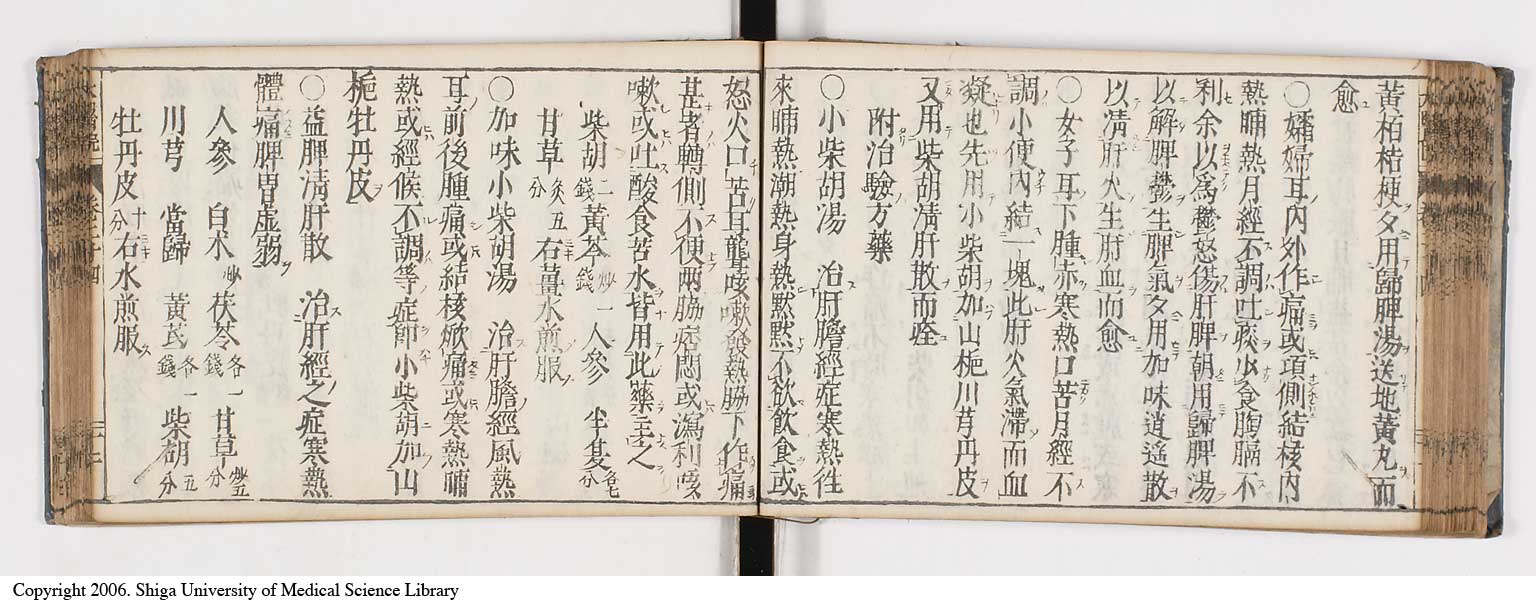 黃栢桔梗夕用歸脾湯送地黃丸而
愈
○孀婦耳內外作痛或項側結核內
熱晡熱月經不調吐痰少食胸膈不
利余以爲鬱怒傷肝脾朝用歸脾湯
以解脾鬱生脾氣夕用加味逍遙散
以凊肝火生肝血而愈
○女子耳下腫赤寒熱口苦月經不
調小便內結一塊此肝火氣滯而血
凝也先用小柴胡加山梔川芎丹皮
又用柴胡凊肝散而痊
附治驗方藥
○小柴胡湯 治肝膽經症寒熱徃
來晡熱潮熱身熱黙黙不欲飮食或
怒火口苦耳聾咳嗽發熱脇下作痛
甚者轉側不便兩脇痞悶或瀉利咳
嗽或吐酸食苦水皆用此藥主之
柴胡二錢 黃芩炒一錢 人參 半夏各七分
甘草炙五分 右薑水煎服
○加味小柴胡湯 治肝膽經風熱
耳前後腫痛或結核焮痛或寒熱晡
熱或經候不調等症卽小柴胡加山
梔牡丹皮
○益脾凊肝散 治肝經之症寒熱
體痛脾胃虛弱
人參 白朮炒 茯苓各一錢 甘草炒五分
川芎 當歸 黃芪各一錢 柴胡五分
牡丹皮十分 右水煎服
Copyright 2006. Shiga University of Medical Science Library